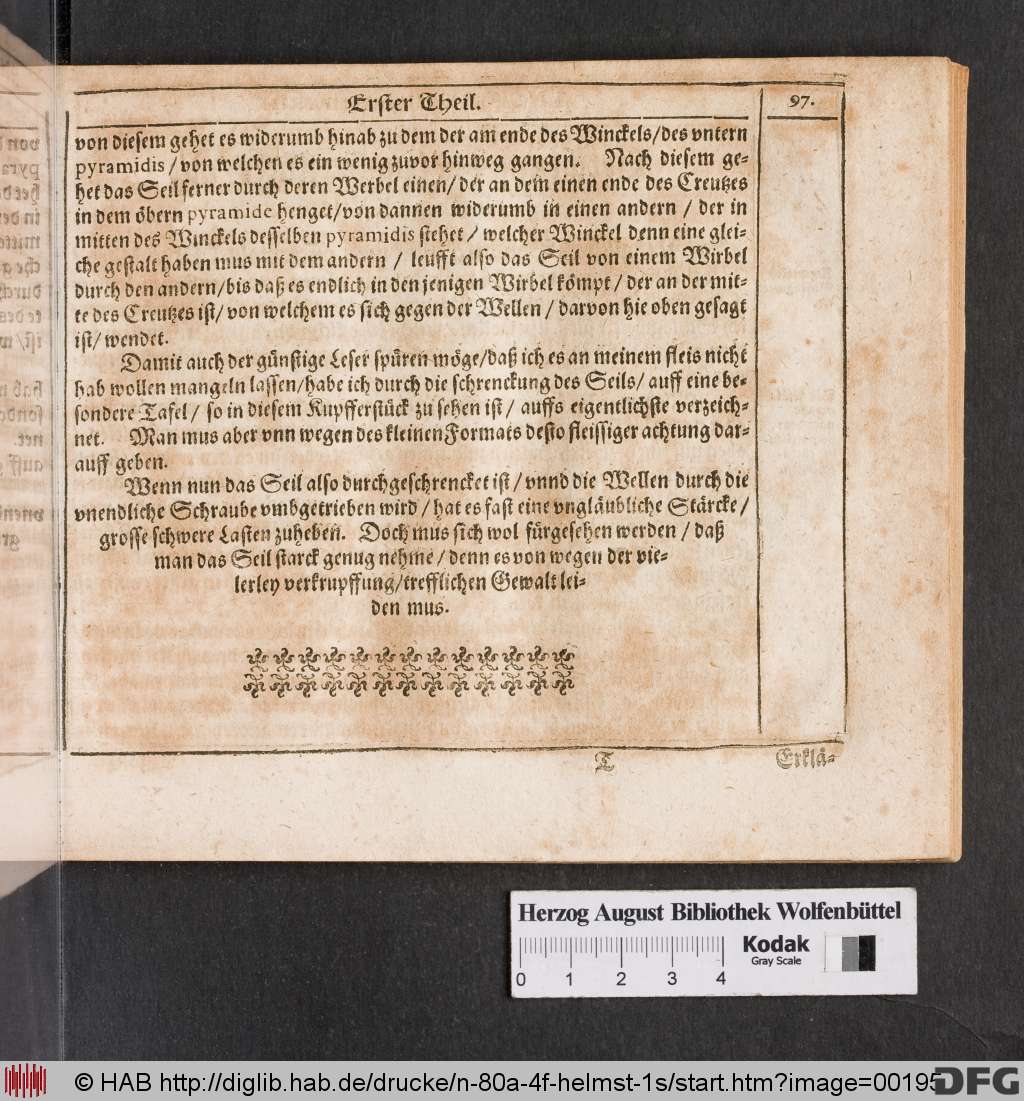 Erster Theil.
97.
von diesem gehet es widerumb hinab zu dem der am ende des Winckels/des vntern
pyramidis / von welchen es ein wenig zuvor hinweg gangen. Nach diesem ge-
het das Seil ferner durch deren Werbel einen/ der an dem einen ende des Creutzes
in dem öbern pyramide henget/von dannen widerumb in einen andern / der in
mitten des Winckels desselben pyramidis stehet / welcher Winckel denn eine glei-
che gestalt haben mus mit dem andern / leufft also das Seil von einem Wirbel
durch den andern/bis daß es endlich in den jenigen Wirbel kömpt / der an der mit-
te des Creutzes ist/ von welchem es sich gegen der Wellen / darvon hie oben gesagt
ist/ wendet.
Damit auch der günstige Leser spüren möge/daß ich es an meinem fleis nicht
hab wollen mangeln lassen/habe ich durch die schrenckung des Seils/ auff eine be-
sondere Tafel / so in diesem Kupfferstück zu sehen ist / auffs eigentlichste verzeich-
net. Man mus aber vnn wegen des kleinen Formats desto fleissiger achtung dar-
auff geben.
Wenn nun das Seil also durchgeschrencket ist / vnnd die Wellen durch die
vnendliche Schraube vmbgetrieben wird / hat es fast eine vngläubliche Stärcke /
grosse schwere Lasten zuheben. Doch mus sich wol fürgesehen werden / daß
man das Seil starck genug nehme / denn es von wegen der vie-
lerley verkrupffung/trefflichen Gewalt lei-
den mus.
T
Erklä-
Herzog August Bibliothek Wolfenbüttel
Kodak
Gray Scale
0 1 2 3 4
© HAB http://diglib.hab.de/drucke/n-80a-4f-helmst-1s/start.htm?image=00195
DFG